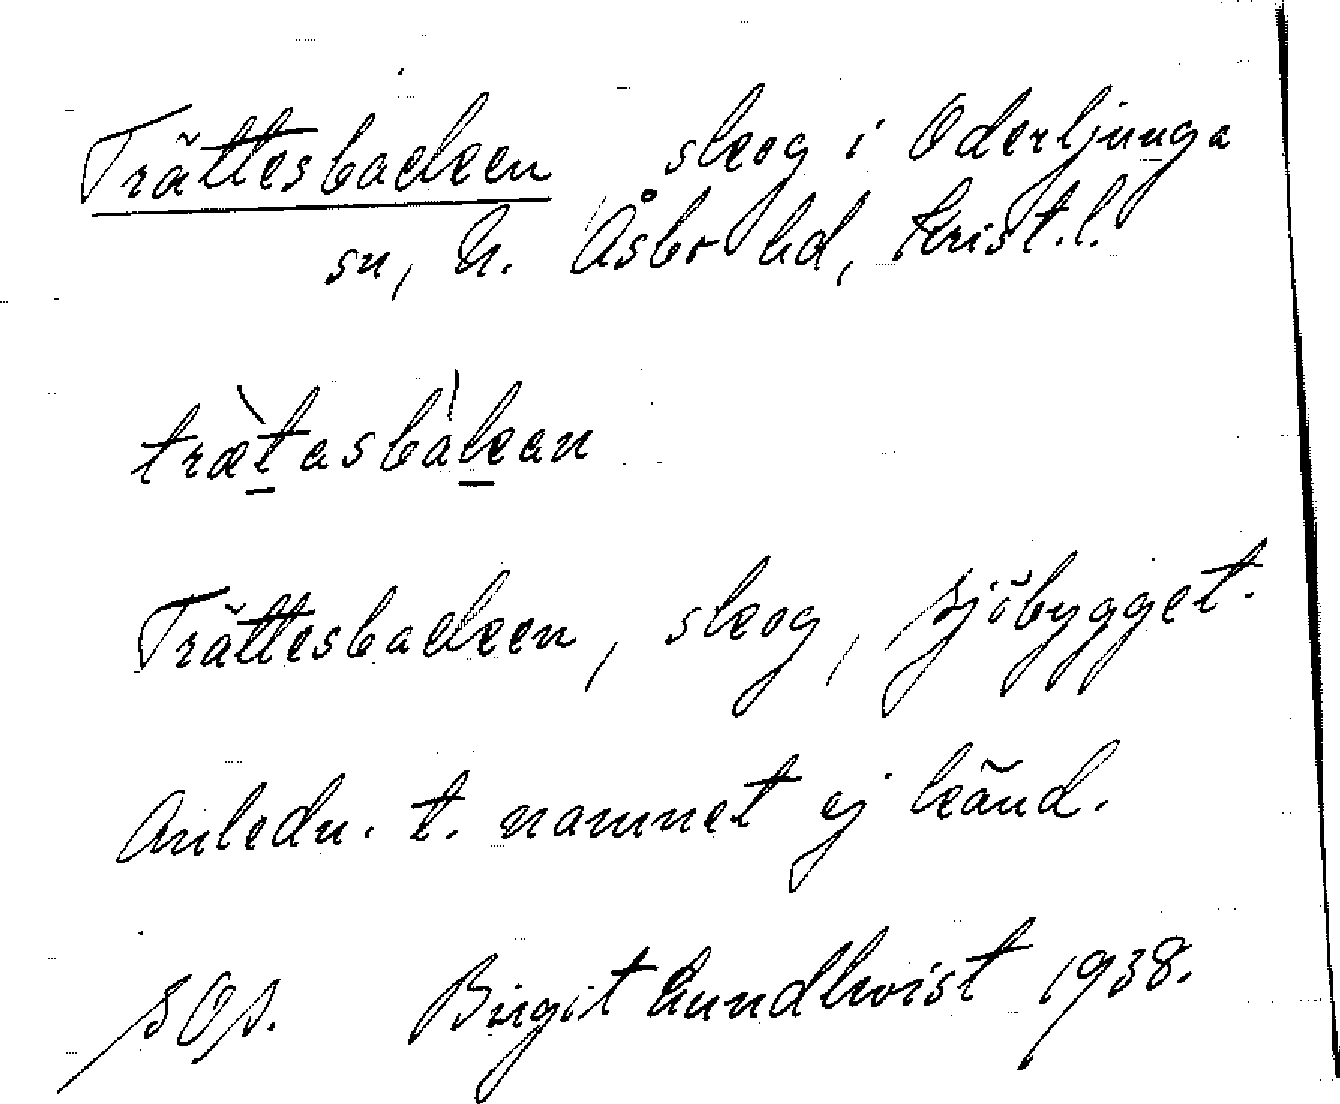 Trättesbacken skog i Oderljunga
sn, N. Åsbo hd, Krist.l.
trætasbakan
Trättesbacken, skog, sjöbygget.
Anledn. t. namnet ej känd.
Birgit Lundkvist 1938.